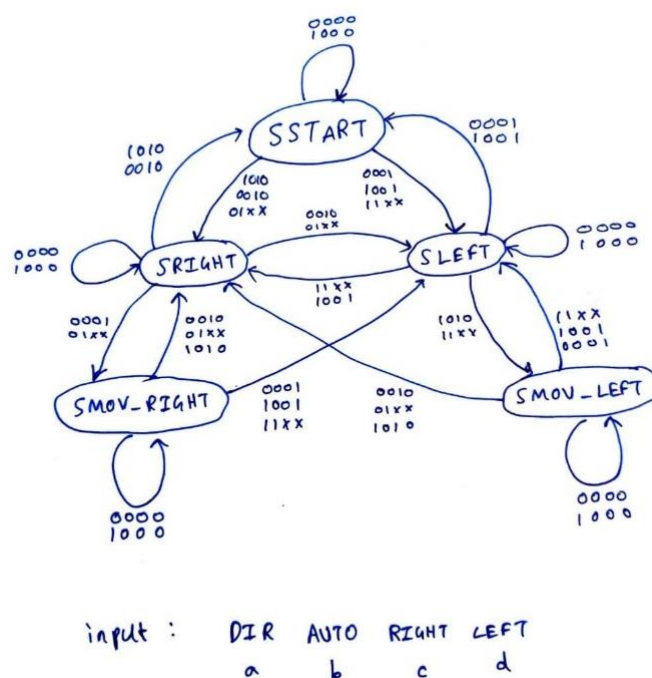 0000
1000
SSTART
1010
0010
0001
1001
1010
0010
01XX
0001
1001
11XX
0000
1000
SRIGHT
0010
01XX
SLEFT
0000
1000
11XX
1001
0001
01XX
0010
01XX
1010
1010
11XX
11XX
1001
0001
SMOV_RIGHT
0001
1001
11XX
0010
01XX
1010
SMOV_LEFT
0000
1000
0000
1000
input : DIR AUTO RIGHT LEFT
a b c d